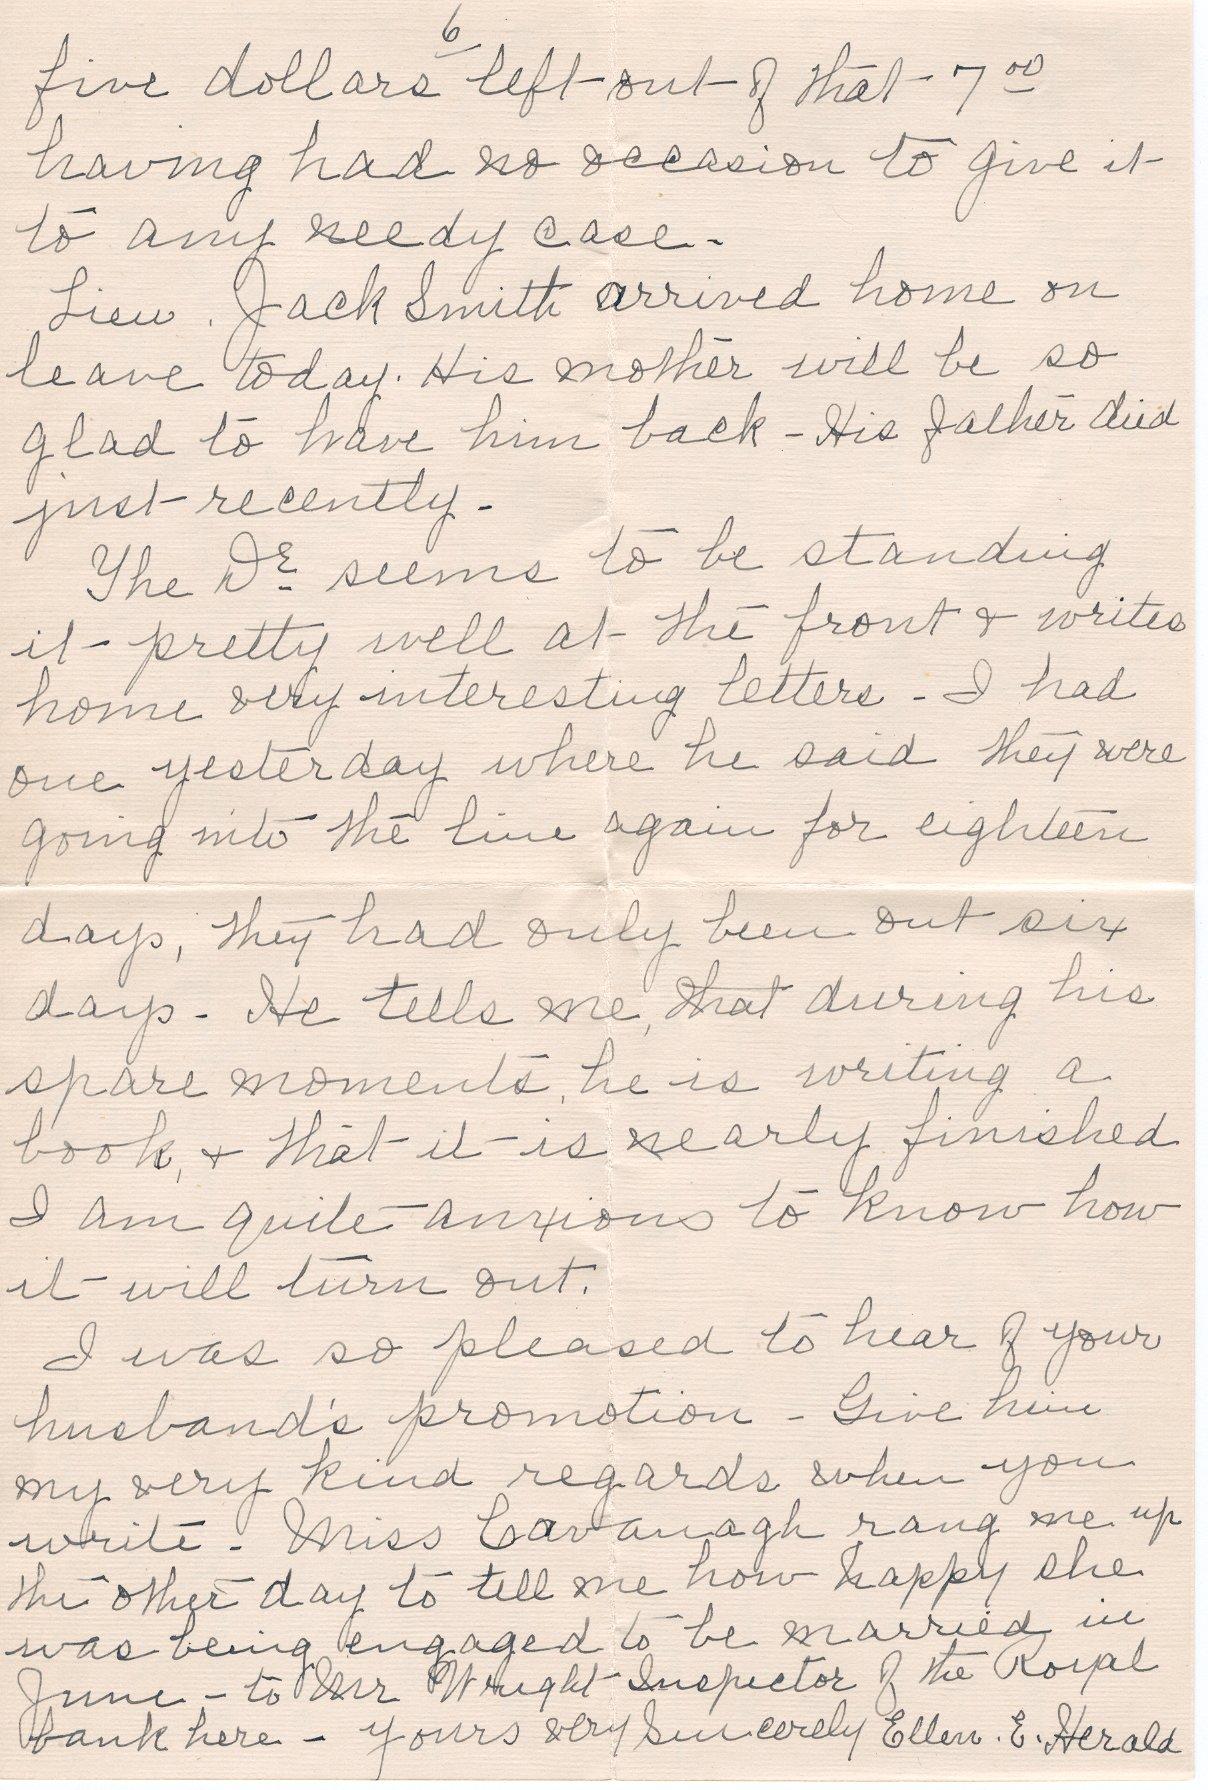 6
five dollars left out of that 7 00
having had no occasion to give it
to any needy case -
Lieu. Jack Smith arrived home on
leave today. His mother will be so
glad to have him back - His father died
just recently -
The Dr. seems to be standing
it pretty well at the front & writes
home very interesting letters - I had
one yesterday where he said they were
going into the line again for eighteen
days, they had only been out six
days - He tells me, that during his
spare moments, he is writing a
book, & that it is nearly finished
I am quite anxious to know how
it will turn out.
I was so pleased to hear of your
husband's promotion - Give him
my very kind regards when you
write - Miss Cavanagh rang me up
the other day to tell me how happy she
was being engaged to be married in
June - to Mr Wright Inspector of the Royal
bank here - yours very sincerely Ellen. E. Herald